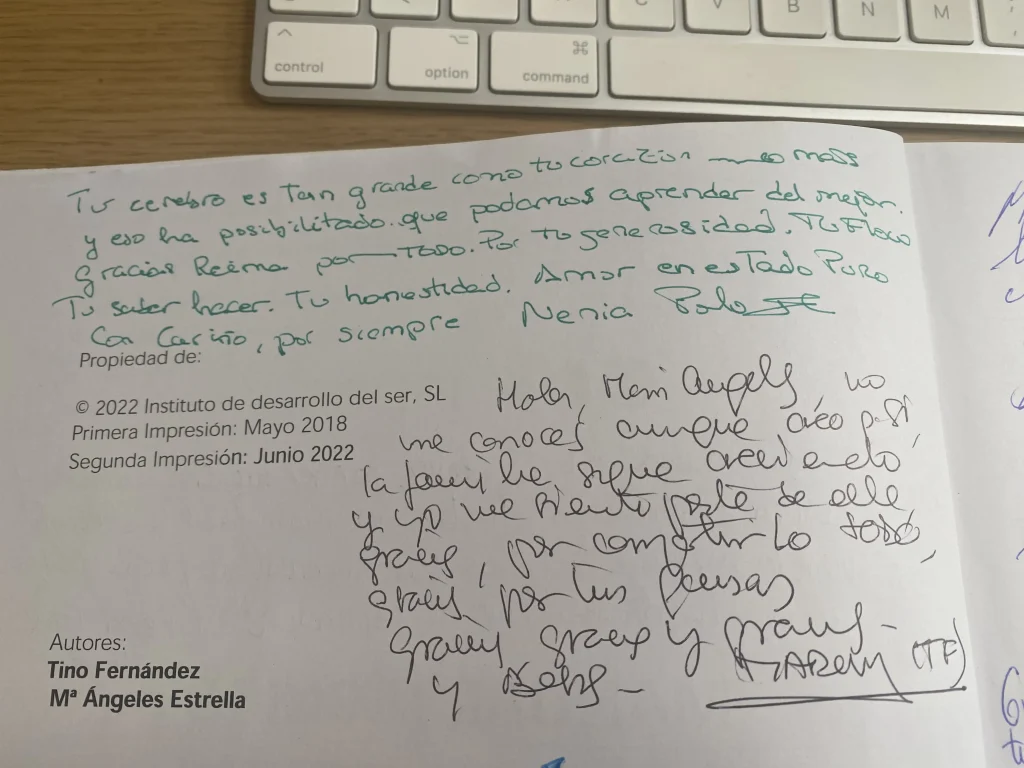 control
option
command
C
V
B
N
M
Tu cerebro es Tan grande como tu corazón o más
y eso ha posibilitado que podamos aprender del mejor.
Gracias Reina por TODO. Por tu generosidad. Tu Flow
Tu saber hacer. Tu honestidad. Amor en esTado Puro
Con Cariño, por siempre Nenia
Propiedad de:
© 2022 Instituto de desarrollo del ser, SL
Primera Impresión: Mayo 2018
Segunda Impresión: Junio 2022
Hola, Mari Angels, no
me conoces aunque creo q sí,
la familia sigue creciendo,
y yo me siento parte de ella
gracias, por compartirlo todo,
gracias por tus pausas
gracias gracias y gracias -
y Besos -
(TF)
Autores:
Tino Fernández
Mª Ángeles Estrella